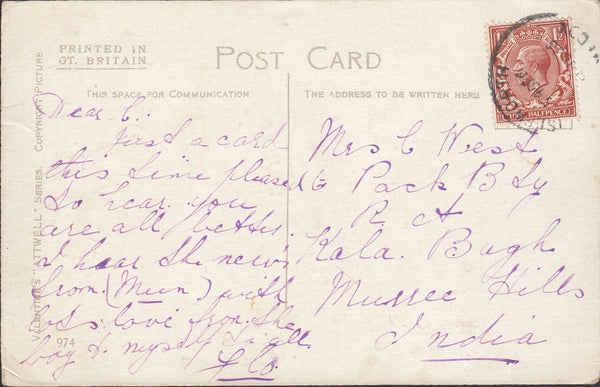 PRINTED IN
GT. BRITAIN
POST CARD
THIS SPACE FOR COMMUNICATION
THE ADDRESS TO BE WRITTEN HERE
VALENTINE'S "ATTWELL" SERIES. COPYRIGHT PICTURE
Dear C.
Just a card
this time pleased
to hear you
are all better.
I hear the news
from (Mum) with
lots love from the
boy & myself to all
Flo.
Mrs C West
Pack Bty
R A
Kala. Bagh
Murree Hills
India
974